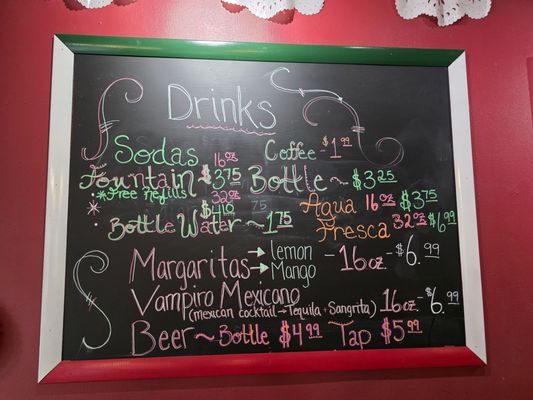 Drinks
Sodas 16oz Coffee - $1.99
Fountain $3.75 Bottle ~ $3.25
*Free Refills 32oz Agua 16oz $3.75
Bottle Water ~ 1.75 Fresca 32oz $6.99
Margaritas → lemon - 16oz - $6.99
→ Mango
Vampiro Mexicano
(mexican cocktail → Tequila + Sangrita) 16oz $6.99
Beer ~ Bottle $4.99 Tap $5.99